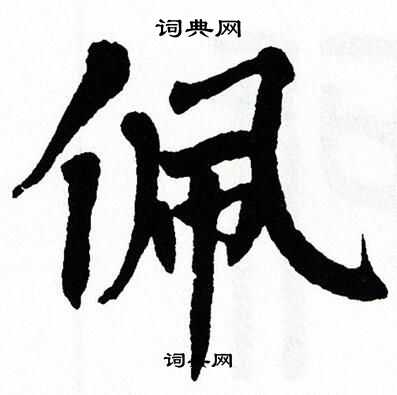 词典网
佩
词典网